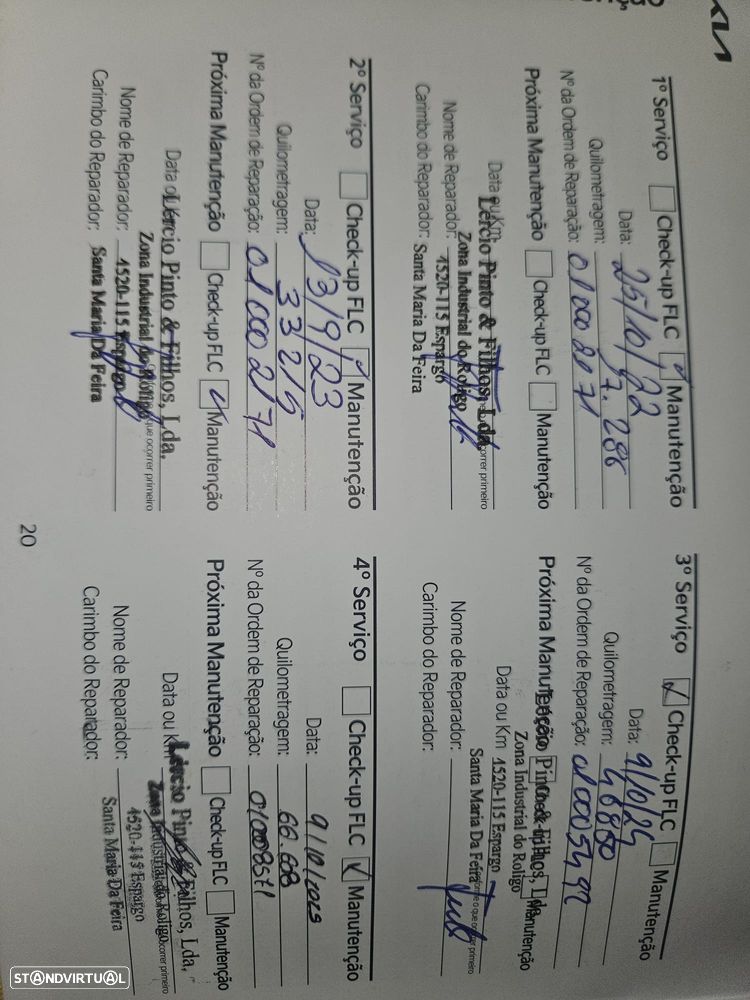 KIA
1º Serviço Check-up FLC Manutenção
Data: 25/10/22
Quilometragem: 17.286
Nº da Ordem de Reparação: 01000 2171
Próxima Manutenção Check-up FLC Manutenção
Data ou Km
Lércio Pinto & Filhos, Lda.
Zona Industrial do Roligo
Nome de Reparador: 4520-115 Espargo
Carimbo do Reparador: Santa Maria Da Feira
2º Serviço Check-up FLC Manutenção
Data: 13/9/23
Quilometragem: 33215
Nº da Ordem de Reparação: 01 000 2171
Próxima Manutenção Check-up FLC Manutenção
Data ou
Lércio Pinto & Filhos, Lda.
Zona Industrial do Roligo que ocorrer primeiro
Nome de Reparador: 4520-115 Espargo
Carimbo do Reparador: Santa Maria Da Feira
3º Serviço Check-up FLC Manutenção
Data: 9/10/24
Quilometragem:
Nº da Ordem de Reparação: 01 0005492
Próxima Manutenção Manutenção
Pinto & Filhos, Lda
Zona Industrial do Roligo
Data ou Km 4520-115 Espargo
Santa Maria Da Feira o que ocorrer primeiro
Nome de Reparador:
Carimbo do Reparador:
4º Serviço Check-up FLC Manutenção
Data: 9/10/2025
Quilometragem: 66.608
Nº da Ordem de Reparação: 010008571
Próxima Manutenção Check-up FLC Manutenção
Data ou Km
Lércio Pinto & Filhos, Lda.
Zona Industrial do Roligo ocorrer primeiro
Nome de Reparador: 4520-115 Espargo
Carimbo do Reparador: Santa Maria Da Feira
20
STANDVIRTUAL